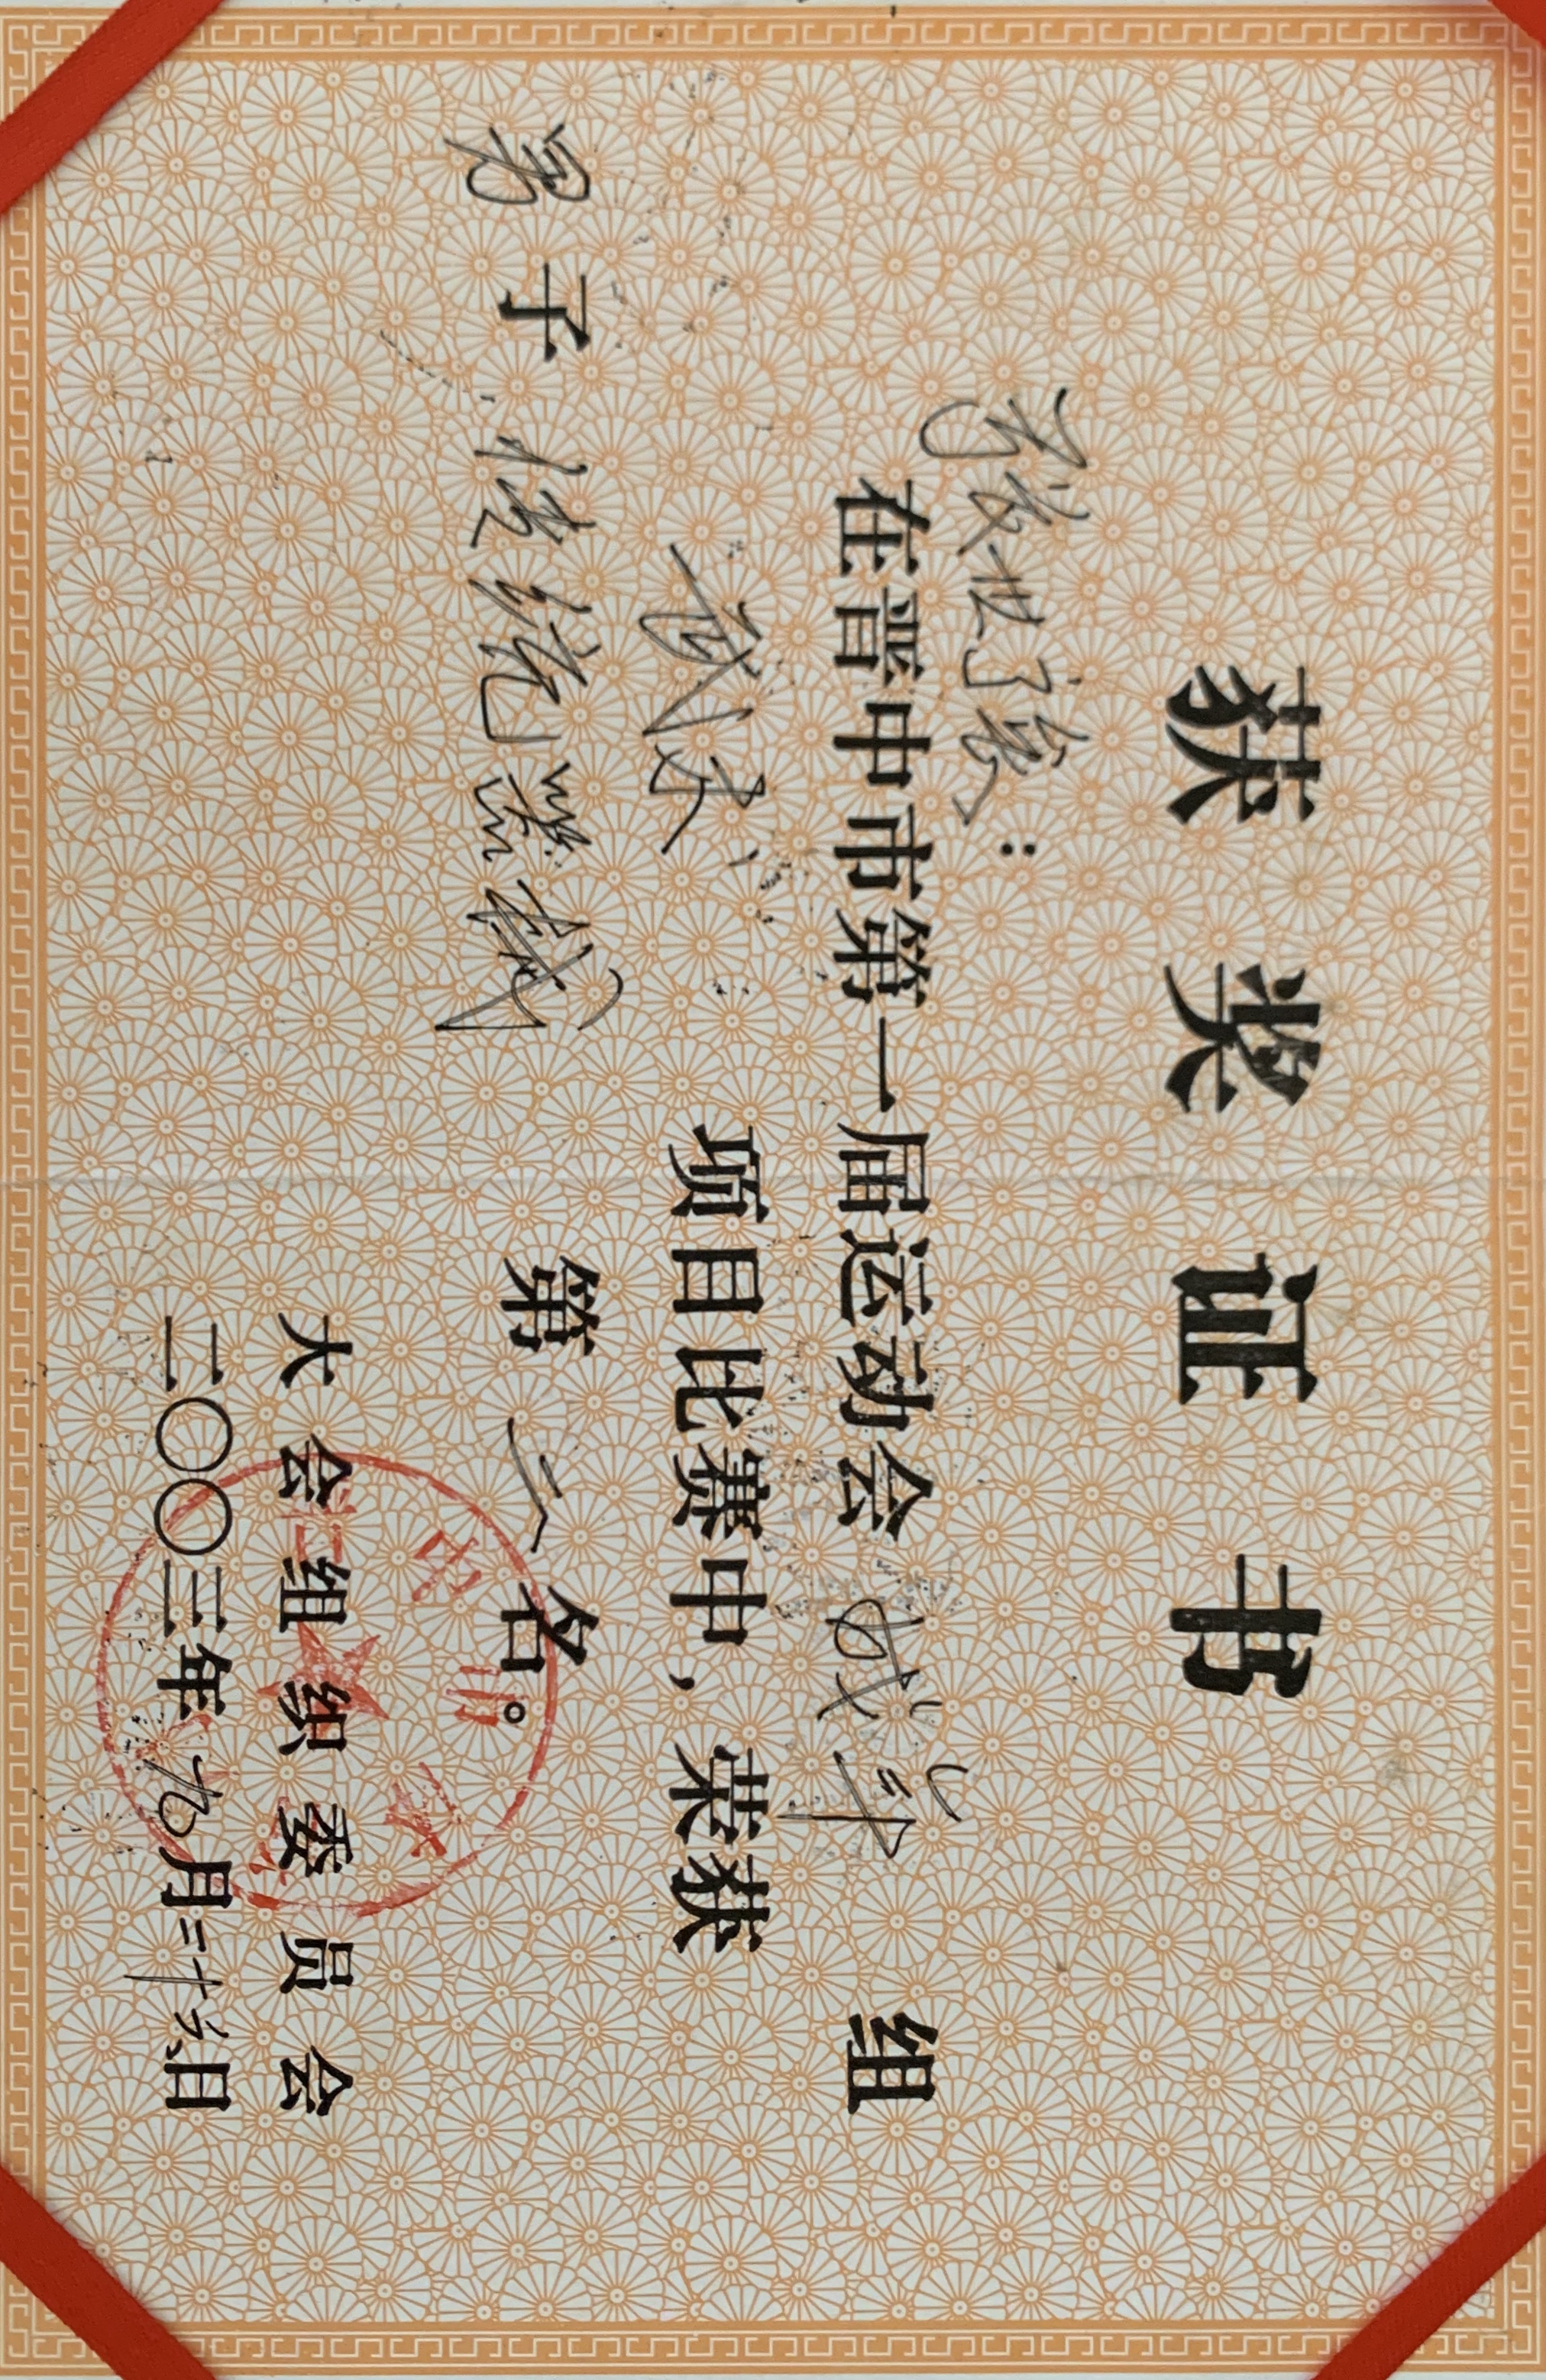 获奖证书
张世了象：
在晋中市第一届运动会成年组
武术项目比赛中，荣获
男子传统器械第二名。
大会组织委员会
二〇〇三年九月二十六日